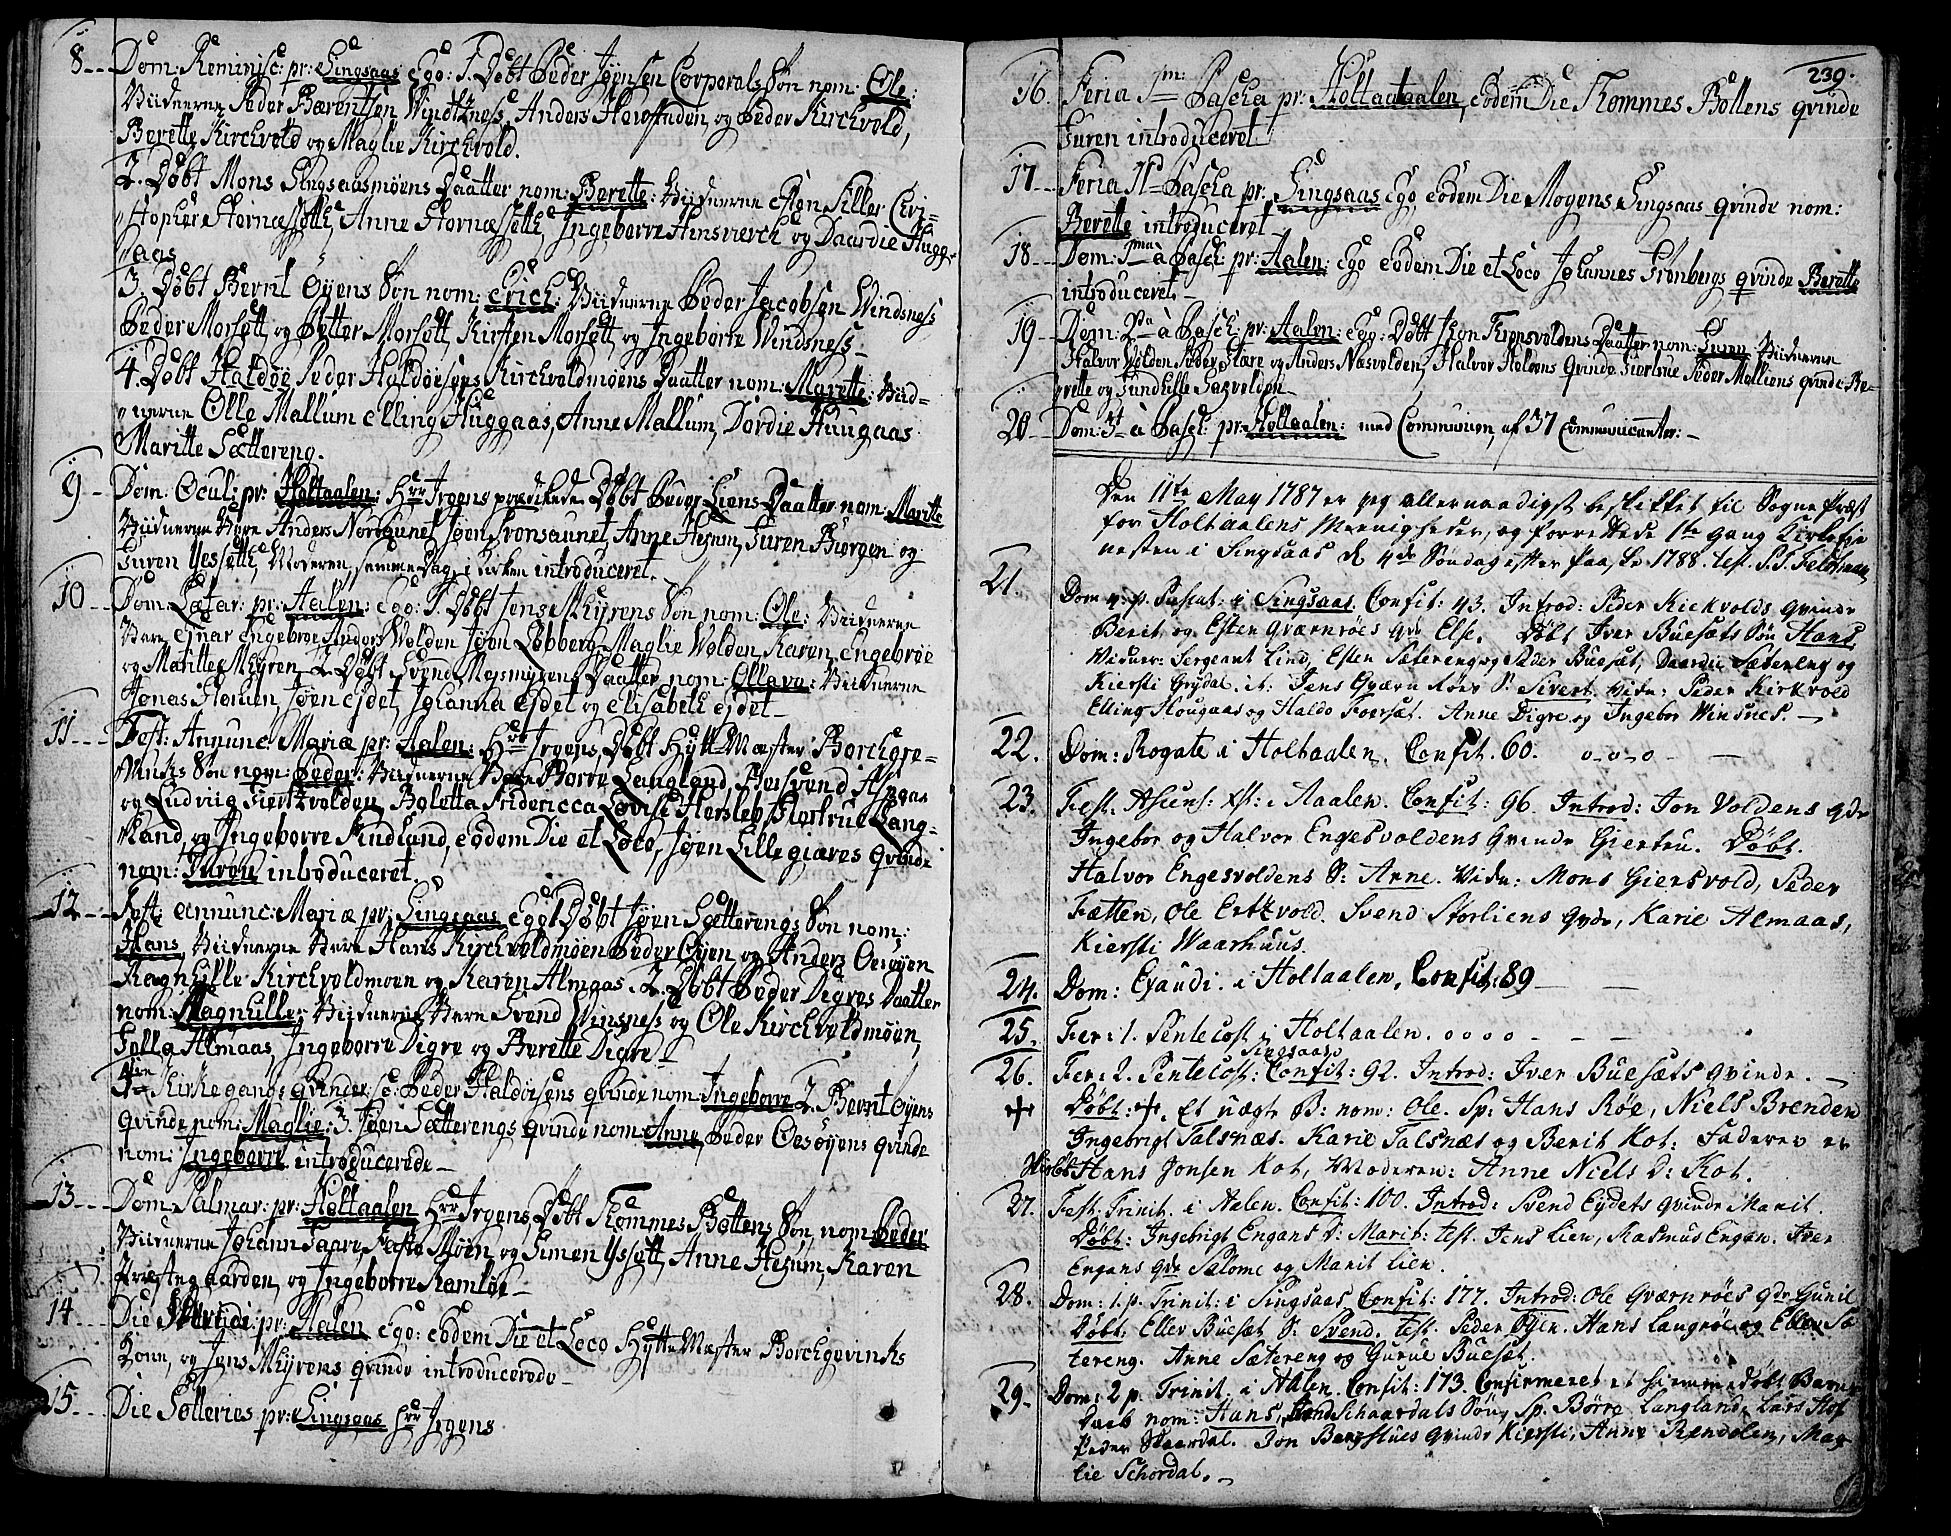 8 Dom: Reminisc: pr: Singsaas Ego: 1. Døbt Peder Jønsen Corporals Søn nom: Ole:
Viidnerne Peder Bærentsen Windtznefs, Anders Hovstaden, og Peder Kirchvold,
Berette Kirchvold og Maglie Kirchvold.
2. Døbt Mons Singsaasmøens Daatter nom: Berette: Viidnerne Esten Siller Chri-
stopher Hornæssetth, Anne Hornæssetth, Ingeborre Hinsværck og Daardie Hugg-
aas
3. Døbt Bernt Øyens Søn nom: Erich: Viidnerne Peder Jacobsen Windsness
Peder Morsett, og Petter Morsett, Kirsten Morsett, og Ingeborre Windsness
4. Døbt Haldøe Peder Haldøesens Kirchvoldmøens Daatter nom: Marette: Viid-
nerne Olle Mallum Elling Huggaas, Anne Mallum, Dordie Huugaas
Maritte Sættereng.
9 Dom: Ocul: pr: Holtaalen: Hrr Irgens prædikede Døbt Peder Liens Daatter nom: Maritte
Viidnerne Vare Anders Nordaunet Jøen Gronsaunet, Anne Hesum, Guren Biørgen og
Guren Yessetth, Moderen samme Dag i Kirken introduceret.
10 Dom: Lætar: pr: Aalen: Ego: 1. Døbt Jens Myrens Søn nom: Ole: Viidnerne
Vare Einar Engebroe Anders Wolden Jøen Løbberg, Maglie Wolden, Karen Engebrøe
og Maritte Myren, 2. Døbt Svend Mosmyrens Daatter nom: Ollava: Viidnerne
Jonas Floxuen, Jøen Eidet, Johanna Eidet og Elisabeth Eidet
11 Fest: Annunc: Mariæ pr: Aalen: Hrr Irgens, Døbt Hytt Mæster Borchgre-
vincks Søn nom: Peder: Viidnerne Vare Borre Langland, Bersvend Aspaas
og Ludvig Hertzvolden, Boletta Fridericca Lovise Herslep Hiertrue Lang-
land, og Ingeborre Findland, eodem Die et Loco, Jøen Lillegiæres Qvinde
nom: Guren introduceret.
12 Fest: Annunc: Mariæ pr: Singsaas Ego 1 Døbt Jøen Sætterengs Søn nom:
Hans, Viidnerne Vare Hans Kirchvoldmøen Peder Øyen og Anders Oesøyen
Ragnhille Kirchvoldmoen og Karen Almaas. 2. Døbt Peder Digres Daatter
nom: Magnhille: Viidnerne Vare Svend Winsness og Ole Kirchvoldmøen,
Sølla Almaas, Ingeborre Digre og Berette Digre
Kirkegangs Qvinder: Peder Haldosens qvinde nom: Ingeborre 2. Bernt Øyens
Qvinde nom: Maglie: 3. Jøen Sætterengs Qvinde nom: Anne, Peder Oesøyens Qvinde
nom: Ingeborre introducerede
13 Dom: Palmar: pr: Holtaalen Hrr Irgens, Døbt Thommes Bøttens Søn, nom: Peder
Viidnerne Johann Gaare, Faste Møen, og Simen Ysset, Anne Hesum, Karen
Præstegaarden, og Ingeborre Ramløe
14 Die Viridi: pr: Aalen: Ego: eodem Die et Loco Hytte Mæster Borchgrevinks
Kone, og Jens Myrens qvinde introducerede
15 Die Solleries pr: Singsaas Hrr Irgens
239.
16. Feria 1me: Pascha pr: Holtaalen, eodem Die Thommes Bøllens qvinde
Guren introduceret
17 Feria II Pascha pr: Singsaas Ego, eodem Die Mogens Singsaas qvinde nom:
Berette introduceret
18 Dom: 1ma à Pasch: pr: Aalen: Ego eodem Die et Loco Johannes Grønbergs qvinde Berette
introduceret.
19 Dom: 2da à Pasch: pr: Aalen: Ego: Døbt Jon Finnsvoldens Daatter nom: Guren Viidnerne
Halvor Volden, Peder Hare og Anders Næsvolden, Halvor Moloens Qvinde Giertrue Peder Molliens Qvinde Be-
rette og Gundelle Sagvolden
20 Dom: 3t à Pasch: pr: Holtaalen: med Communion af 37 Communicanter:
Den 11te May 1787 er jeg allernaadigst beskikket til Sogne Præst
for Holtaalens Meenigheder, og forrettede 1te gang Kirketje
nesten i Singsaas d. 4de Søndag efter Paaske 1788. test. S. S. Feldtmann
21. Dom 4. p. Pascat: i Singsaas. Confit: 43. Introd: Peder Kirkvolds qvinde
Berit og Esten Qværnrøes qde Else. Døbt Iver Buesæts Søn Hans
Vidner: Sergeant Lind, Esten Sætereng og Peder Buesæt, Daardie Sætereng og
Kiersti Grydal. it: Jens Qværn Røes S: Sivert Vidn: Peder Kirkvold
Elling Hougaas og Haldo Foersæt. Anne Digre og Ingebor Winsnes.
22. Dom: Rogate i Holtaalen. Confit. 60.
23. Fest. Ascens: Xti: i Aalen. Confit: 96. Introd: Jon Voldens qde
Ingebor og Halvor Engesvoldens qvinde Giertru. Døbt.
Halvor Engesvoldens D: Anne. Vidn: Mons Giersvold, Peder
Fætten, Ole Ertzvold. Svend Storliens Qvde, Karie Almaas,
Kiersti Waarhuus
24. Dom: Exaudi. i Holtaalen, Confit: 89
25. Fer: 1. Pentecost i Holtaalen.
26. Fer: 2. Pentecost: Singsaas Confit: 92. Introd: Iver Buesæts qvinde.
Døbt: Et uægte B: nom: Ole. Sp: Hans Røe, Niels Brenden
Ingebrigt Talsnæs. Karie Talsnæs og Berit Kot: Faderen er
Hans Jonsen Kot, Moderen: Anne Niels D: Kot.
27. Fest: Trinit. i Aalen. Confit: 100. Introd: Svend Eydets qvinde Marit
Døbt: Ingebrigt Engans D: Marit: test. Jens Lien, Rasmus Engan. Iver
Engans qde Salome og Marit Lien.
28. Dom: 1. p. Trinit: i Singsaas Confit: 177. Introd: Ole Qværnrøes qde Gunil
Døbt. Eller Buesæt S: Svend. test. Peder Øyen. Hans Langrøe og Ellen Sæ
tereng. Anne Sætereng og Gurue Buesæt.
29. Dom: 2 p. Trinit. i Aalen. Confit: 173. Confirmeret et hiemmedøbt Barns
Daab nom: Hans, Schaardals Søn, Sp. Børre Langland, Lars Hof
Peder Skaardal. Jon Bergstues qvinde Kiersti, Anne Rendolen, Mag
lie Schordal.